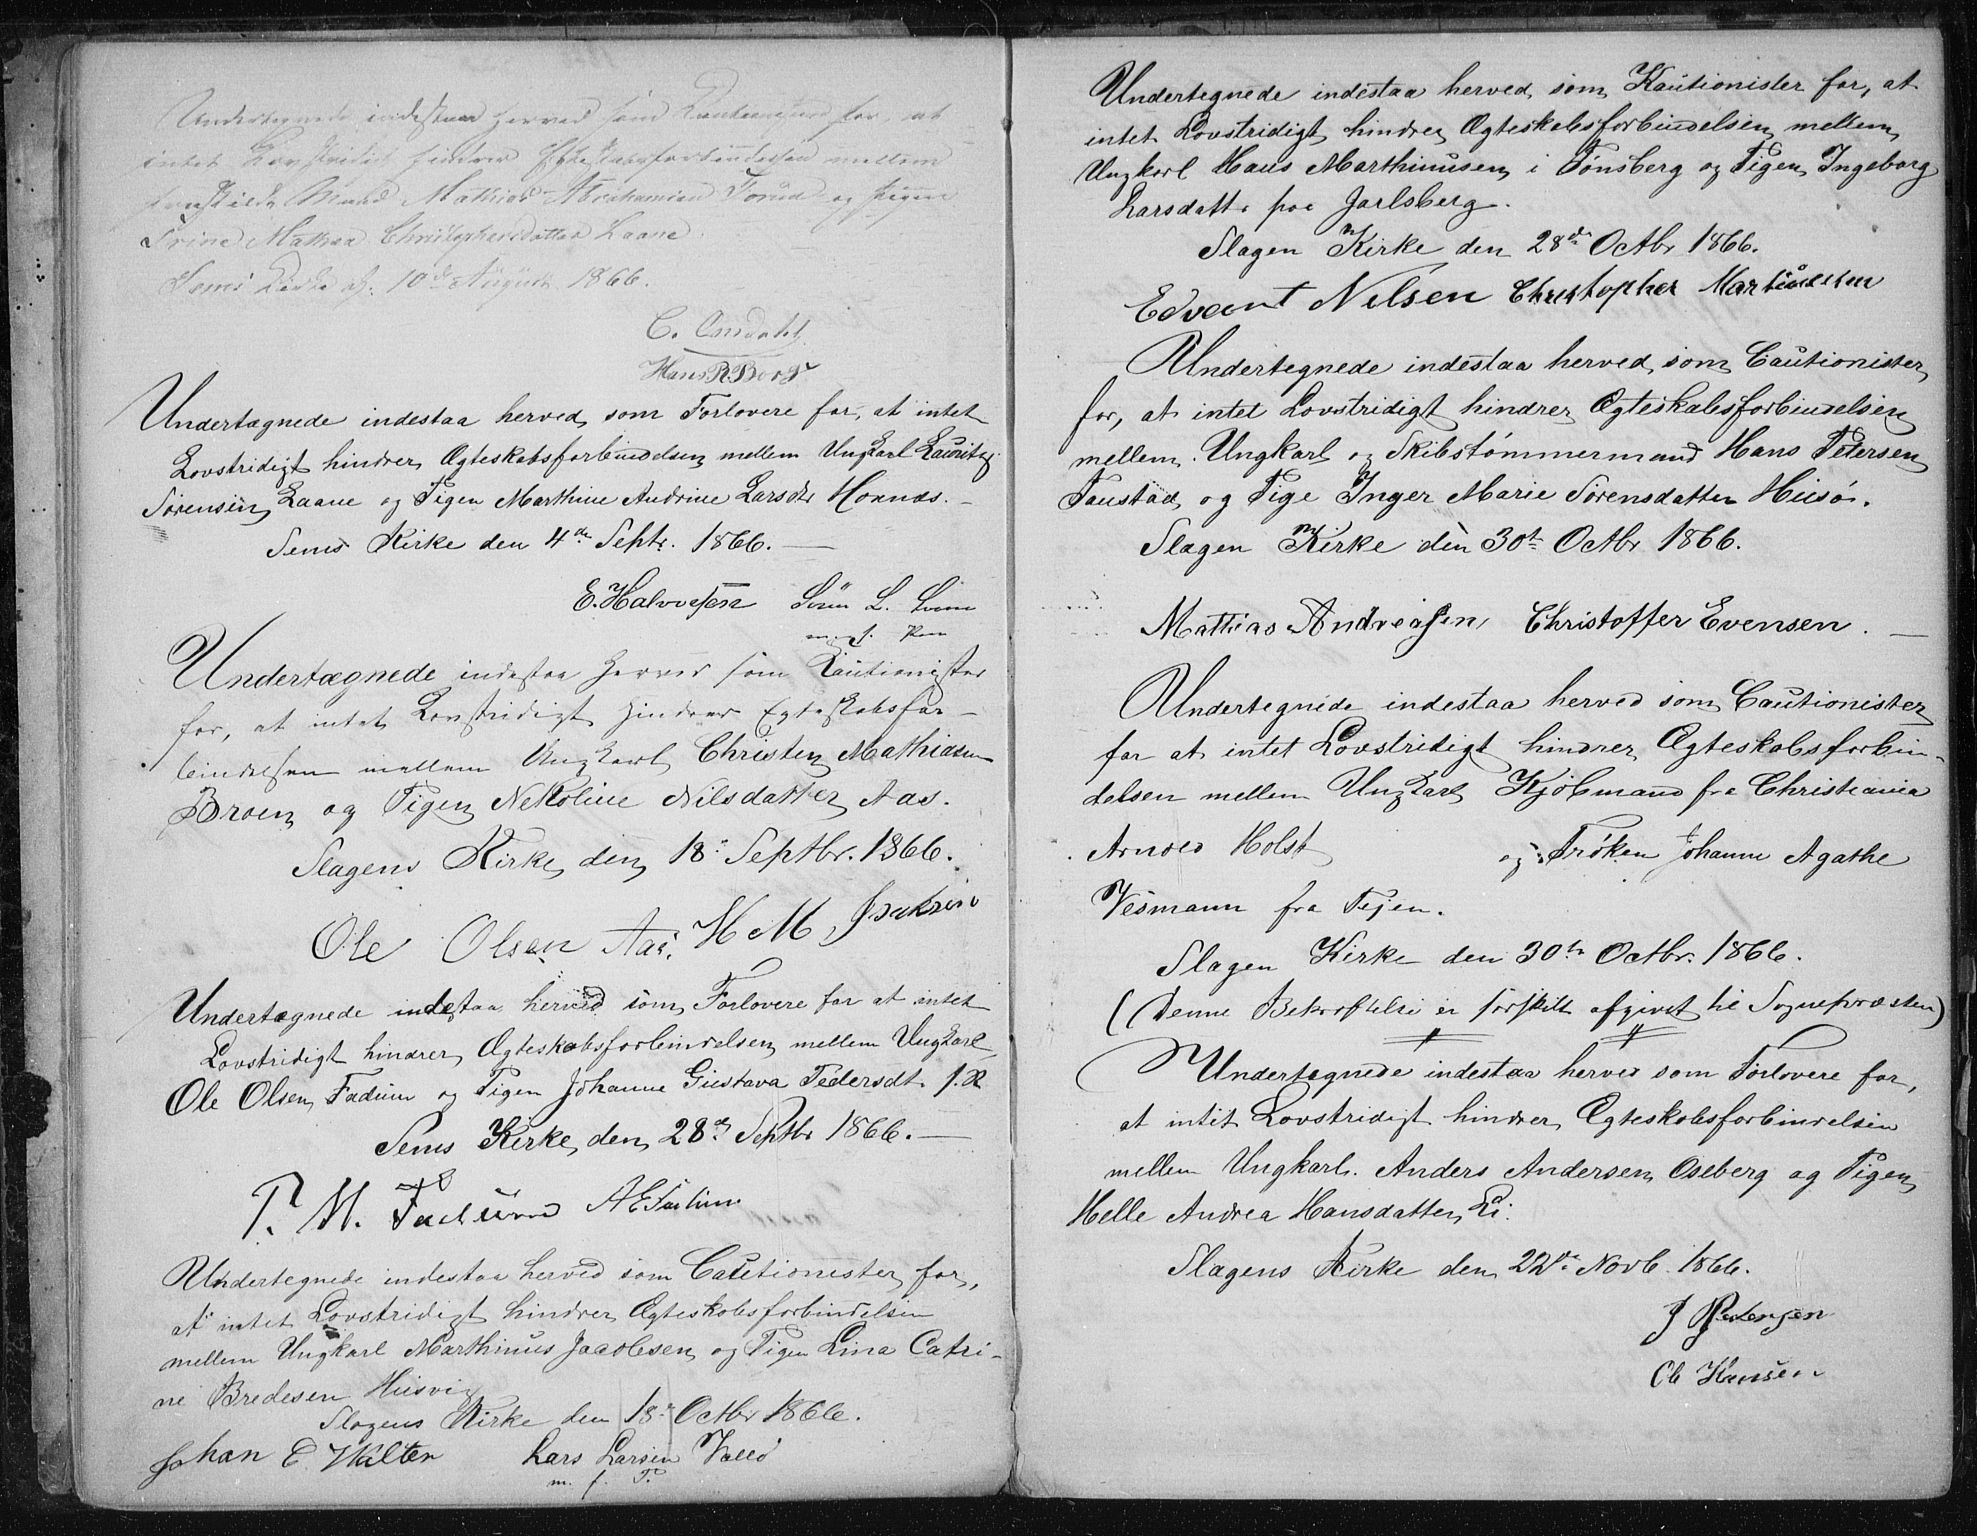 Undertegnede indestaa herved som Cautionister for, at
intet Lovstridigt hindrer Egteskabsforbindelsen mellem
fraskildte Mand Mathias Abrahamsen Torud og Pigen
Trine Mathea Christophersdatter Laane.
Sems Kirke d: 10de August 1866.
C. Omdahl
Hans R. Borg
Undertægnede indestaa herved som Forlovere for, at intet
Lovstridigt hindrer Ægteskabsforbindelsen mellem Ungkarl Lauritz
Sørensen Laane og Pigen Marthine Andrine Larsdtr Hoands.
Sems Kirke den 4de Septr. 1866.
E. Halvorsen Søren L.
m. f. Pen
Undertægnede indestaa herved som Kautionister
for, at intet Lovstridigt hindrer Egteskabsfor-
bindelsen mellem Ungkarl Christen Mathiasen
Broen og Pigen Nekoline Nilsdatter Aas.
Slagens Kirke den 18de Septbr. 1866.
Ole Olsen Aas. H M Isaksen
Undertægnede indestaa herved som Forlovere for at intet
Lovstridigt hindrer Ægteskabsforbindelsen mellem Ungkarl
Ole Olsen Fadum og Pigen Johanne Gustava Pedersdt. f. R
Sems Kirke den 28de Septbr 1866.
P. M. Fadum A E Fadum
Undertegnede indestaa herved som Cautionister for,
at intet Lovstridigt hindrer Ægteskabsforbindelsen
mellem Ungkarl Marthinus Jacobsen og Pigen Lina Catri-
ne Bredesen Husvig
Slagens Kirke den 18de Octbr 1866.
Johan C. Walter Lars Larsen Valld
m. f. P.
Undertegnede indestaa herved som Kautionister for, at
intet Lovstridigt hindrer Ægteskabsforbindelsen mellem
Ungkarl Hans Marthinusen i Tønsberg og Pigen Ingeborg
Larsdatter paa Jarlsberg.
Slagen Kirke den 28de Octbr 1866.
Edvart Nilsen Christopher Martinusen
Undertegnede indestaa herved som Cautionister
for, at intet Lovstridigt hindrer Ægteskabsforbindelsen
mellem Ungkarl og Skibstømmermand Hans Petersen
Taustad og Pige Inger Marie Sørensdatter Husø.
Slagen Kirke den 30te Octbr 1866.
Mathias Andreasen Christoffer Evensen.
Undertegnede indestaa herved som Cautionister
for at intet Lovstridigt hindrer Ægteskabsforbin-
delsen mellem Ungkarl Kjøbmand fra Christiania
Arnold Holst og Frøken Johanne Agathe
Vesmann fra Tejen.
Slagen Kirke den 30te Octbr. 1866.
(Denne Bekræftelse er særskilt afgivet til Sognepræsten)
Undertegnede indestaa herved som Forlovere for,
at intet Lovstridigt hindrer Ægteskabsforbindelsen
mellem Ungkarl Anders Andersen Oseberg og Pigen
Helle Andrea Hansdatter Li.
Slagens Kirke den 22de Novb. 1866.
J Pedersen
Ole Hansen